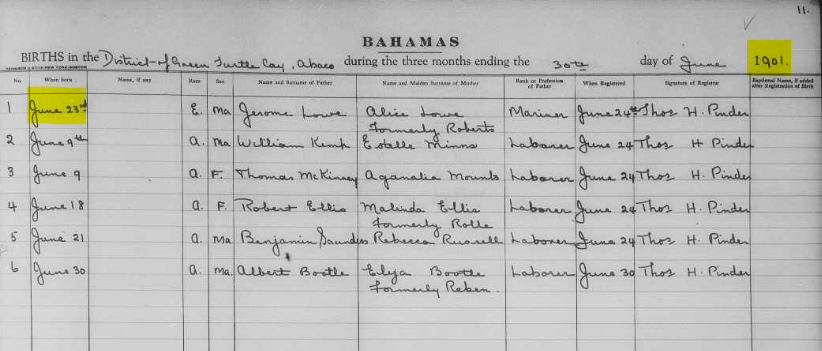 11.
BAHAMAS
BIRTHS in the District of Green Turtle Cay, Abaco during the three months ending the 30th day of June 1901.
When born Name, if any Race Sex Name and Surname of Father Name and Maiden Surname of Mother Rank or Profession of Father When Registered Signature of Registrar Baptismal Name, if added after Registration of Birth
1 June 23rd E. Ma Jerome Lowe Alice Lowe Mariner June 24th Thos H. Pinder
Formerly Roberts
2 June 9th a. Ma William Kemp Estelle Minns Laborer June 24 Thos H Pinder
3 June 9 a. F. Thomas McKinney Aganalia Mounts Laborer June 24 Thos H. Pinder
4 June 18 a. F. Robert Ellis Malinda Ellis Laborer June 24 Thos H. Pinder
Formerly Rolle
5 June 21 a. Ma Benjamin Saunders Rebecca Russell Laborer June 24 Thos H. Pinder
6 June 30 a. Ma. Albert Bootle Eliza Bootle Laborer June 30 Thos H. Pinder
Formerly Reken.